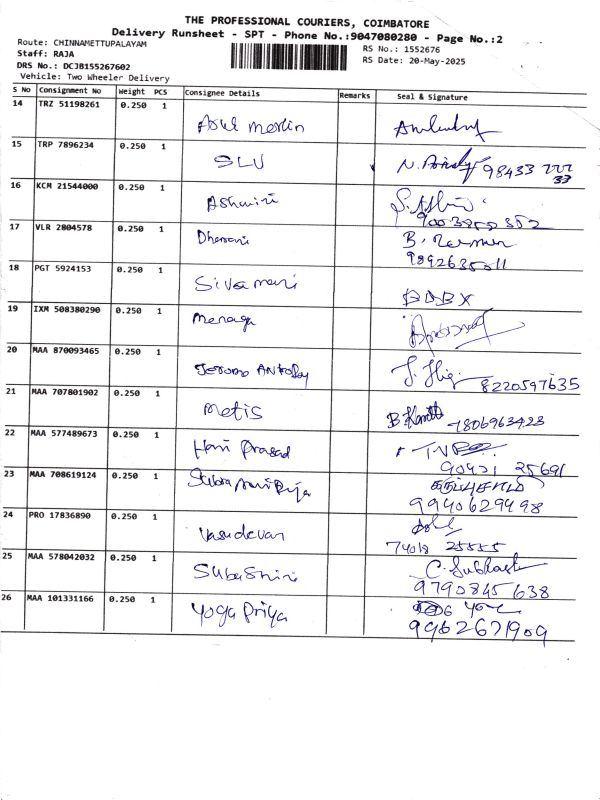 THE PROFESSIONAL COURIERS, COIMBATORE
Delivery Runsheet - SPT - Phone No.:9047080280 - Page No.:2
Route: CHINNAMETTUPALAYAM
Staff: RAJA
DRS No.: DCJB155267602
Vehicle: Two Wheeler Delivery
RS No.: 1552676
RS Date: 20-May-2025
S No Consignment No Weight PCS Consignee Details Remarks Seal & Signature
14 TRZ 51198261 0.250 1
Merlin
15 TRP 7896234 0.250 1
SLV
98433
33
16 KCM 21544000 0.250 1
Ashwini
17 VLR 2804578 0.250 1
Dharani
B.
18 PGT 5924153 0.250 1
Sivamani
19 IXM 508380290 0.250 1
Menaga
20 MAA 870093465 0.250 1
Jerome Antony
8220597635
21 MAA 707801902 0.250 1
Metis
7806963423
22 MAA 577489673 0.250 1
Hari Prasad
90421 25691
23 MAA 708619124 0.250 1
கருப்புசாமி
9940629498
24 PRO 17836890 0.250 1
Vasudevan
74018 25555
25 MAA 578042032 0.250 1
SubaShini
C. Subhash
9790845638
26 MAA 101331166 0.250 1
Yoga Priya
9962671909